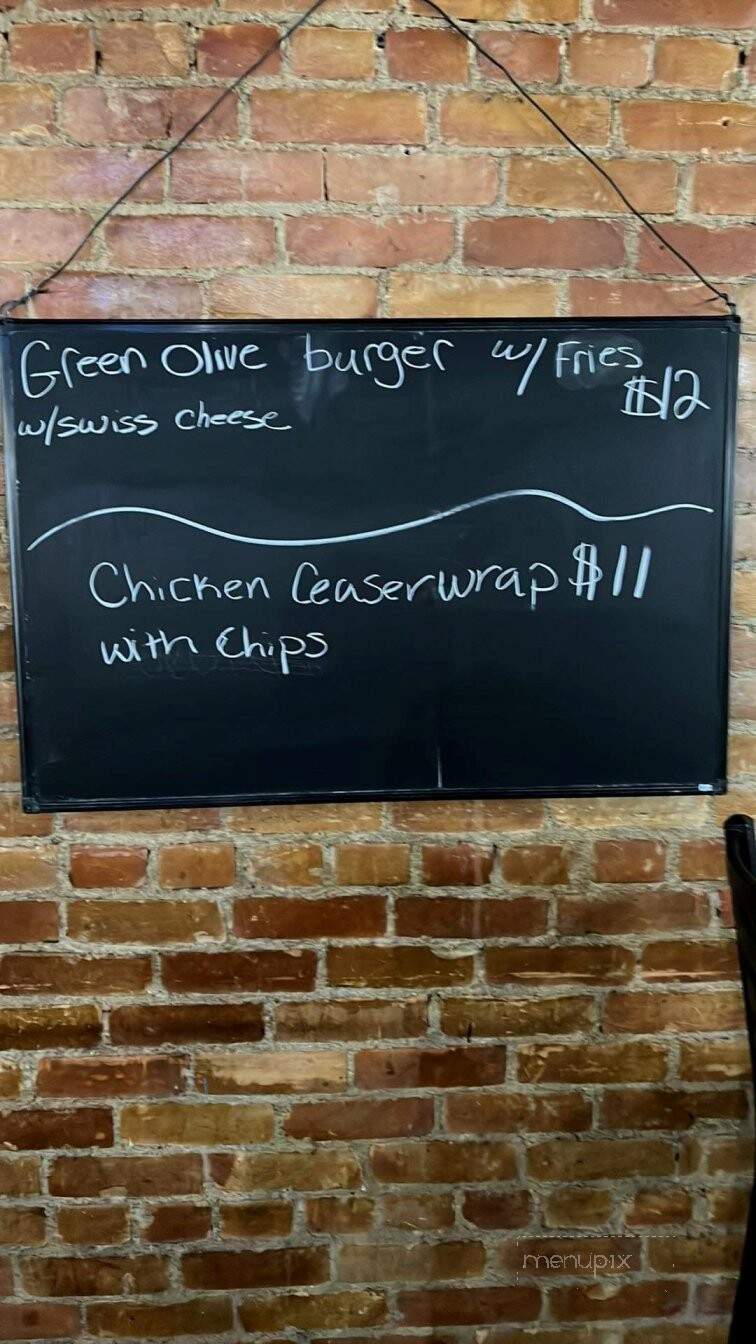 Green Olive burger w/ Fries
$12
w/swiss cheese
Chicken Ceaser wrap $11
with Chips
menupix